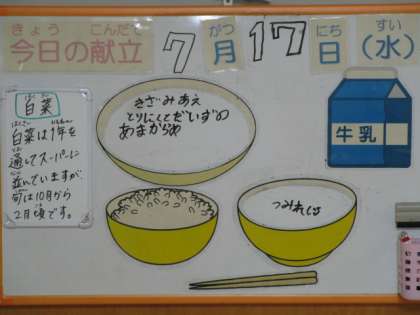 きょう こんだて
今日の献立
7
がつ
月
17
にち
日
すい
(水)
はくさい
白菜
白菜は1年を
通してスーパーに
並んでいますが、
旬は10月から
2月頃です。
きざみあえ
とりにくとだいずの
あまからめ
つみれじる
牛乳